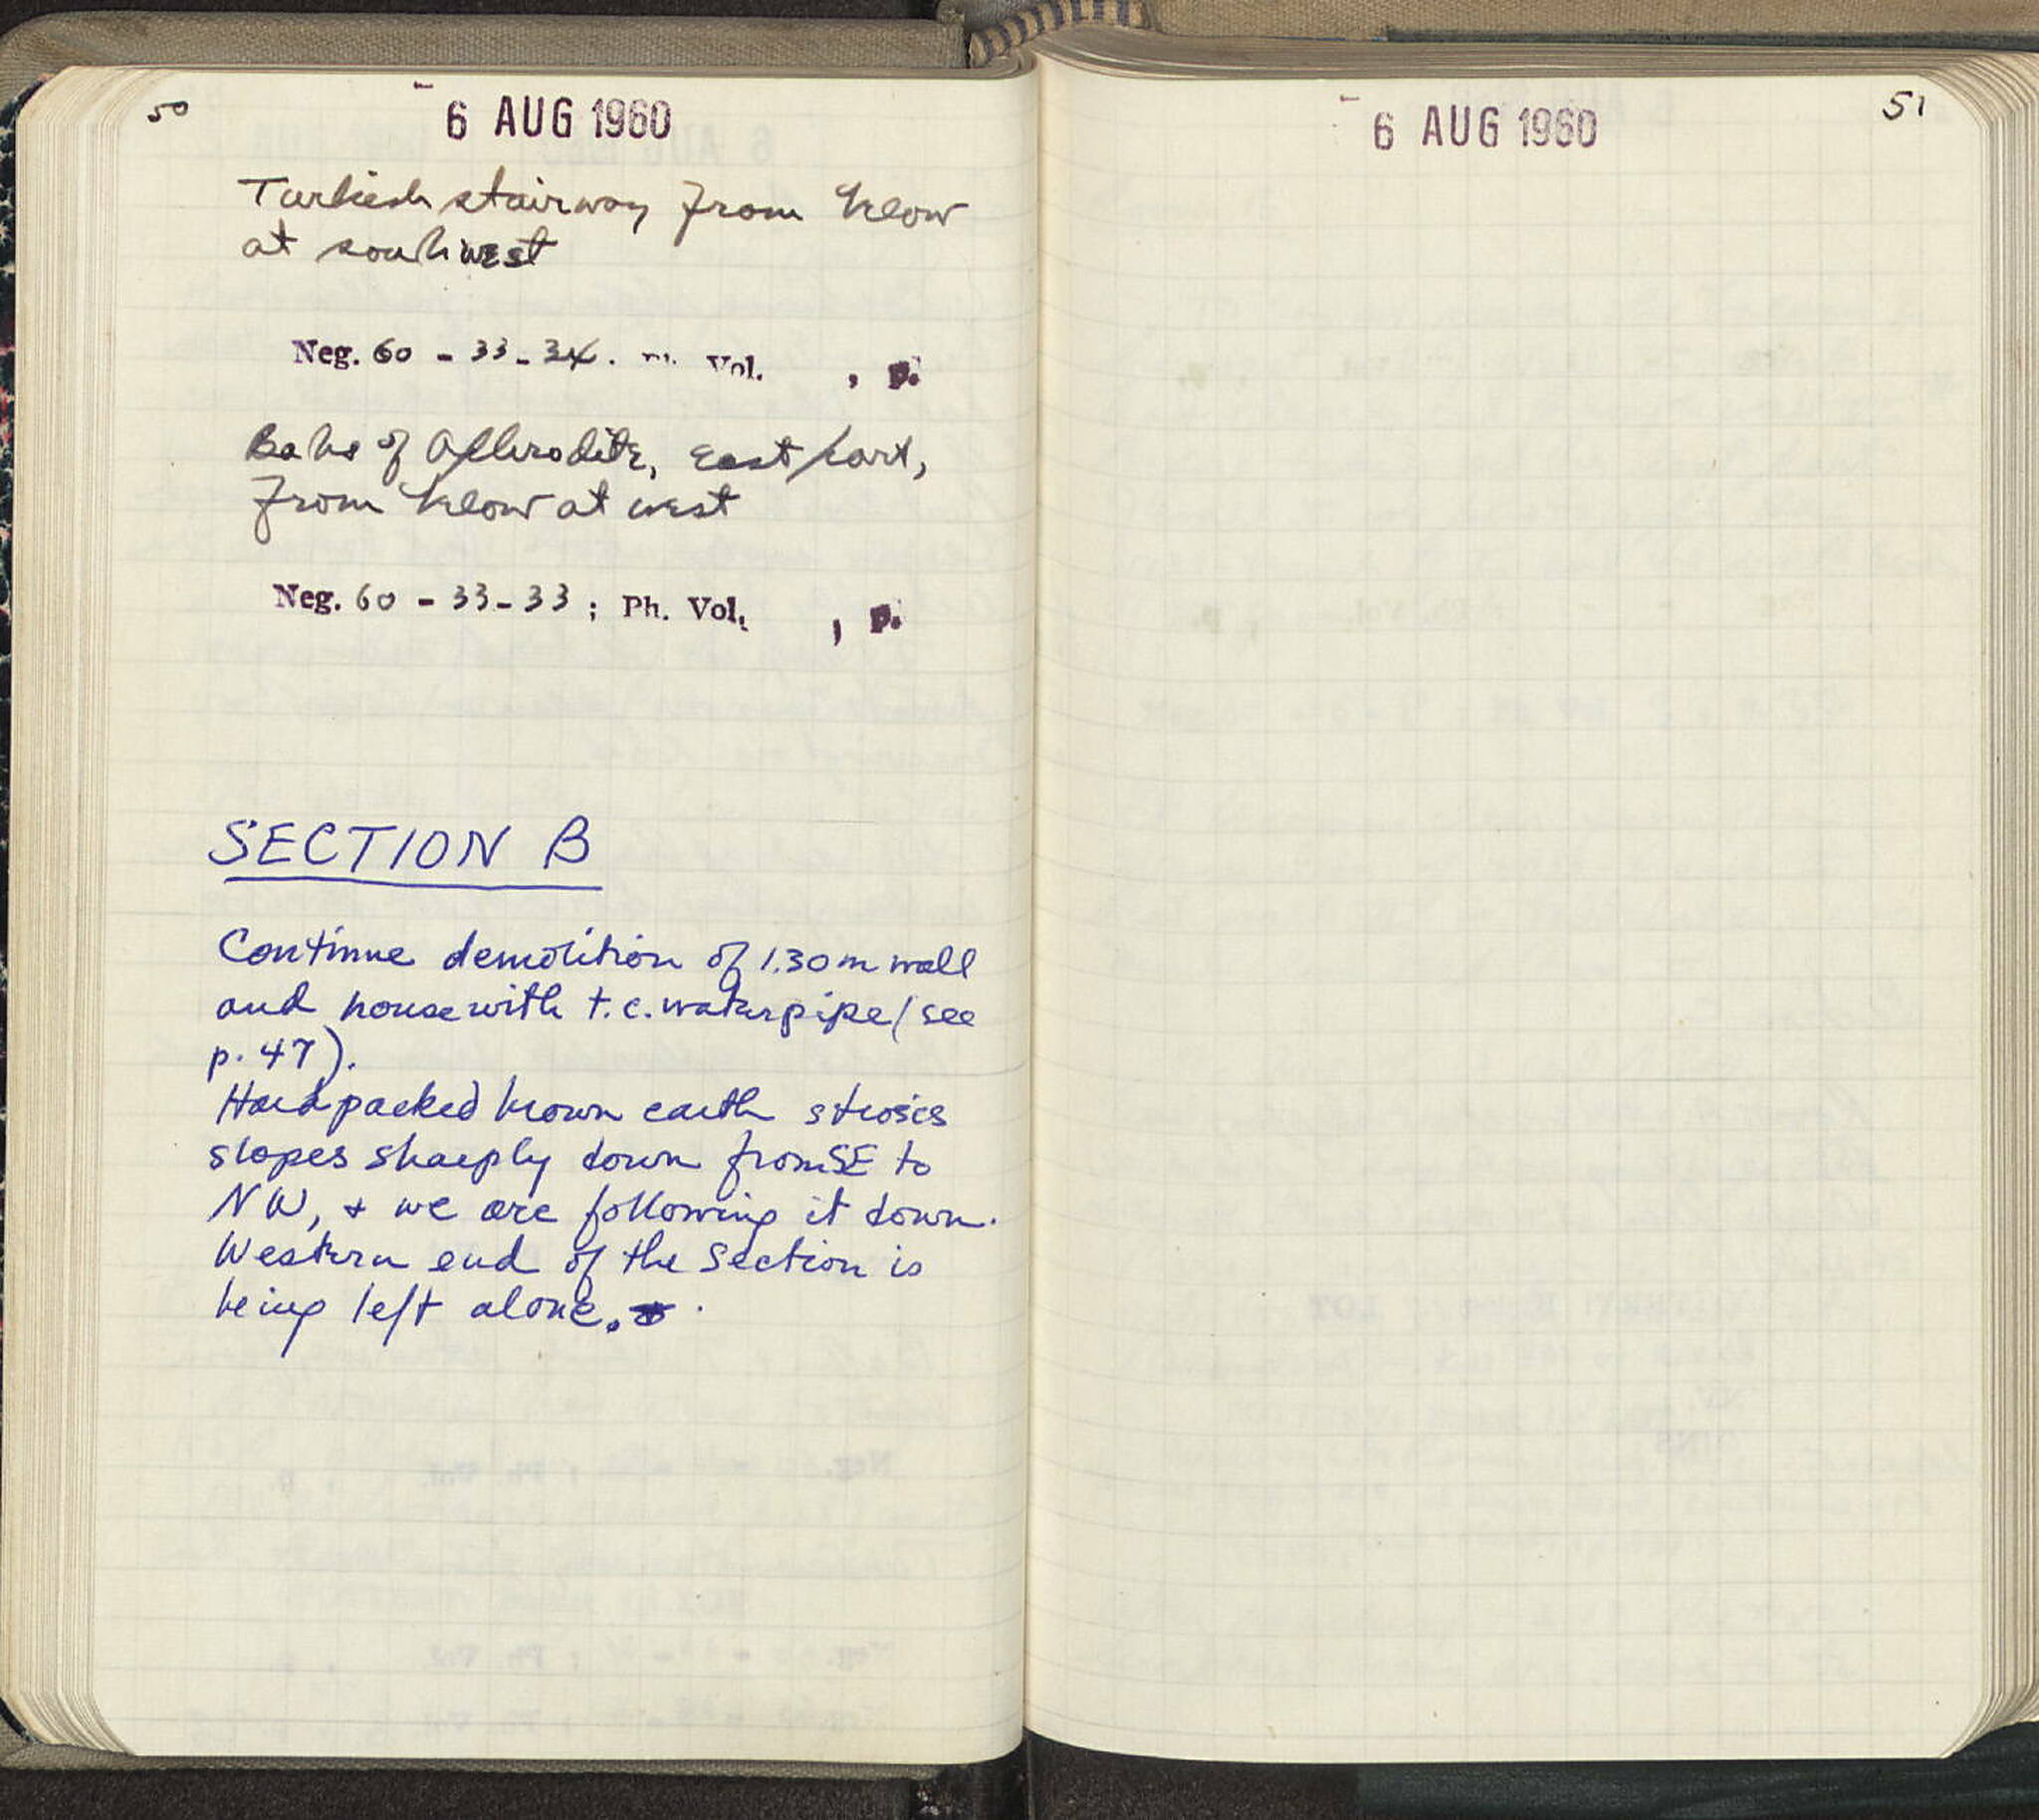 50
6 AUG 1960
Turkish stairway from below
at southwest
Neg. 60 - 33 - 34. Vol. , p.
Baths of Aphrodite, East part,
from below at west
Neg. 60 - 33 - 33 ; Ph. Vol. , p.
SECTION B
Continue demolition of 1.30 m wall
and house with t.c. waterpipe (see
p. 47).
Hard packed brown earth strosis
slopes sharply down from SE to
NW, + we are following it down.
Western end of the Section is
being left alone.
51
6 AUG 1960